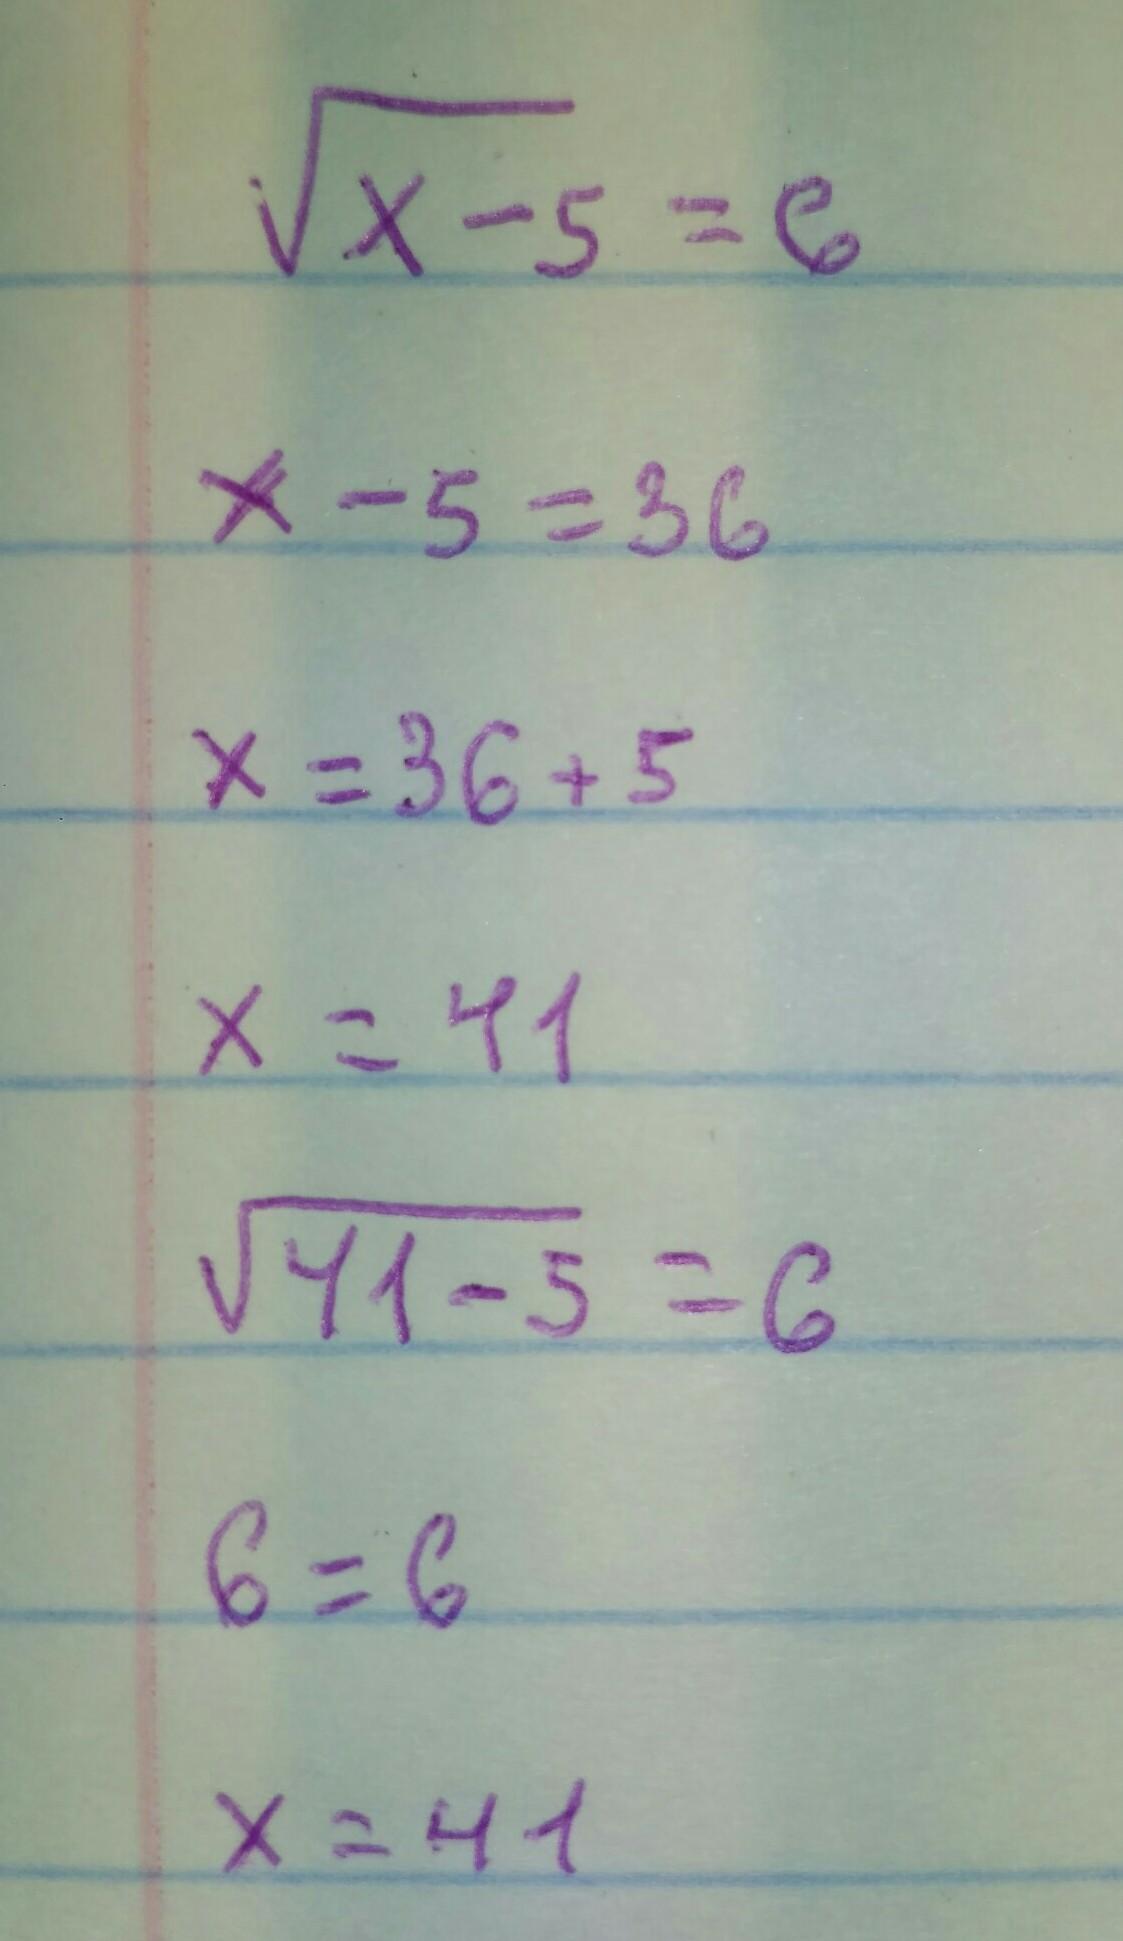 √x-5 = 6
x - 5 = 36
x = 36 + 5
x = 41
√41-5 = 6
6 = 6
x = 41